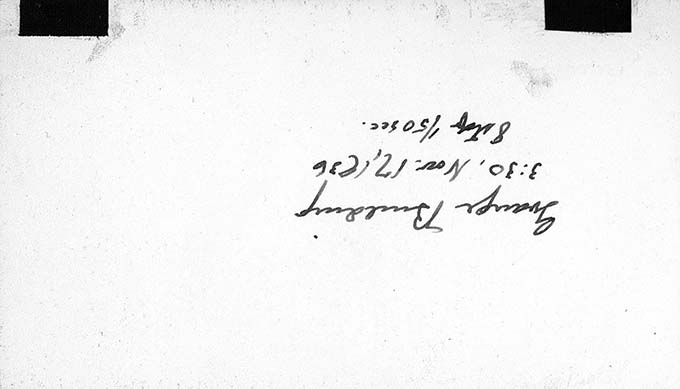 Grange Building
3:30, Nov. 17, 1936
8 stop 1/50 sec.